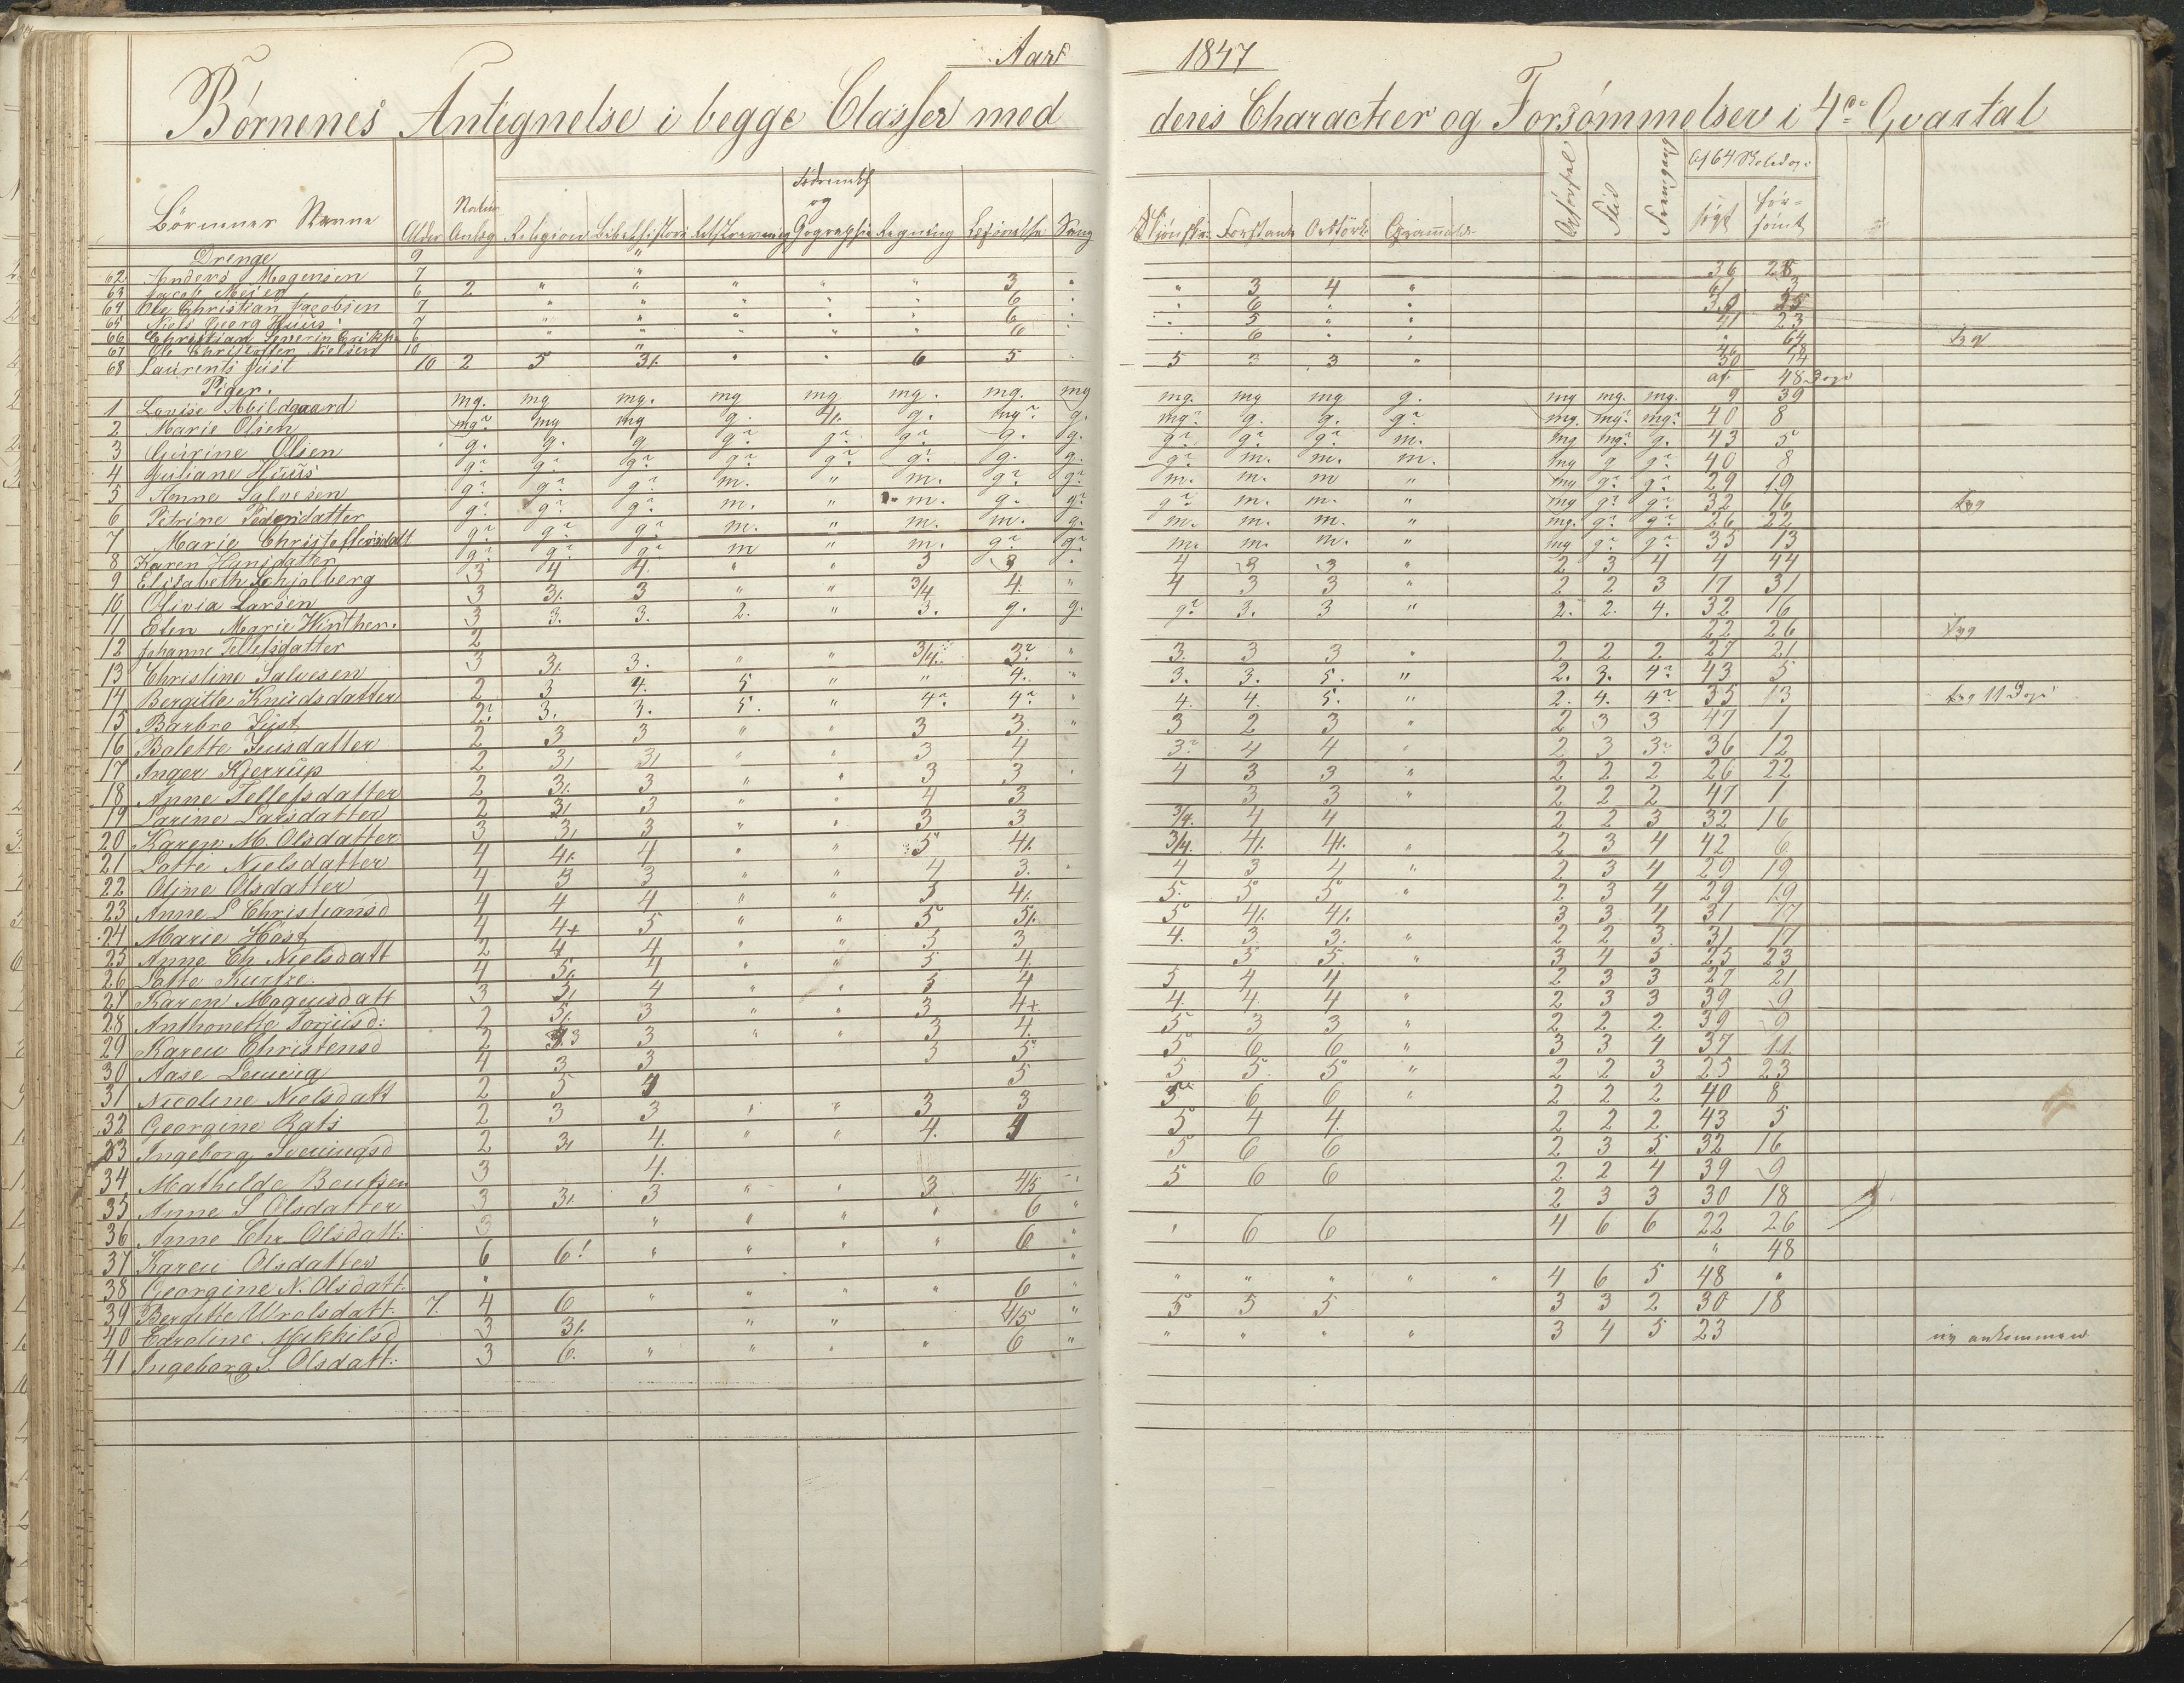 Aar 1847
Børnenes Antegnelse i begge Classer med deres Characteer og Forsømmelser i 4de Qvartal
Børnenes Navne Alder Natur Anlæg Religion Bibelhistorie Retskrivning og Geographie Regning Sang Forstand Grammatik Opførsel Flid Fremgang Af 64 Skoledage søgt forsømt
Drenge 9 "
62 Anders Mogensen 7 " 36 28
63 Jacob Meier 6 2 " " " " " 3 " " 3 4 " 61 3
64 Ole Christian Jacobsen 7 " " " " " 6 " " 6 " "
65 Niels Georg Huus 7 " " " " " 6 " " 5 " " 41 23
66 Christian Severin 6 " " " " " 6 " " 6 " " " 64
67 Ole Christoffer Nielsen 10 " 46 18
68 Laurents Just 10 2 5 3/. " " 6 5 5 3 3 " 50 14
Piger. af 48 Dage
1 Lovise Abildgaard mg. mg mg. mg mg mg. mg. mg mg. mg mg g. mg mg. mg. 9 39
2 Marie Olsen mg? mg mg g. 4/. g. mg? g. mg? g. g. g? mg. mg? mg? 40 8
3 Gurine Olsen g. g. g g? g? g? g. g. g? g? g? m. mg mg? g. 43 5
4 Juliane Huus g? g? g? g? g? g? g. g. g? m. m. m. mg g g? 40 8
5 Anne Salvesen g? g? g? m. " m. g? g? m. m. m " mg g? g? 29 19
6 Petrine Pedersdatter g? g? g? m. " m. g. g? g? m. m. " mg g? g? 32 16
7 Marie Christoffersdatt g? g? g? m. " m. m. g. m. m. m. " mg. g? g? 26 22
8 Karen Hansdatter g? g? g? m " m. g? g? m. m. m. " mg g? g? 35 13
9 Elisabeth Schjelberg 3 4 4. " " 3 3 " 4 3 3 " 2 3 4 4 44
10 Olivia Larsen 3 3/. 3 " " 3/4 4. " 4 3 3 " 2 2 3 17 31
11 Elen Marie Winther. 3 3. 3. 2. " 3. g. g. g? 3. 3 " 2. 2. 4. 32 16
12 Johanne Tellefsdatter 2 22 26
13 Christine Salvesen 3 3/. 3. " " 3/4. 3? " 3. 3 3 " 2 2 2 27 21
14 Bergitte Knudsdatter 2 3 4. 5 " " 4. " 3. 3. 5. " 2. 3. 4? 43 5
15 Barbro Just 2? 3. 3. 5. " 4? 4? " 4. 4. 5. " 2. 4. 4? 35 13
16 Balette Juusdatter 2 3 3 " " 3 3. " 3 2 3 " 2 3 3 47 1
17 Inger Kjerrup 2 3/ 3/ " " 3 4 3? 4 4 " 2 3 3? 36 12
18 Anne Tellefsdatter 2 3/. 3 " " 3 3 " 4 3 3 " 2 2 2 26 22
19 Larine Larsdatter 2 3/ 3 " " 4 3 3 3 " 2 2 2 47 1
20 Karen M. Olsdatter 3 3/ 3 " " 3 3 3/4. 4 4 2 2 3 32 16
21 Lotte Nielsdatter 4 4/. 4 " " 5 4/. 3/4. 4/. 4/. " 2 3 4 42 6
22 Oline Olsdatter 4 3 3 " " 4 3. " 4 3 4 " 2 3 4 29 19
23 Anne L Christiansd 4 4 4 " " 5 4/. 5. 5 5 " 2 3 4 29 19
24 Marie Høst 4 4+ 5 " " 5 5/. 5 4/. 4/. 3 3 4 31 17
25 Anne Ch Nielsdatt 2 4 4 " " 3 3 4. 3. 3. " 2 2 3 31 17
26 Lotte 4 5/. 4 " " 5 4. 5 5. " 3 4 5 25 23
27 Karen Mogensdatt 3 3/ 4 " " 3 4 5 4 4 2 3 3 27 21
28 Anthonette 2 5/. 3 " " 3 4+ 4. 4. 4 " 2 3 3 39 9
29 Karen Christensd 2 3 3 " " 3 4. 5 3 3 " 2 2 2 39 9
30 Aase 4 3 3 3 5 5 6 6 " 3 3 4 37 11.
31 Nicoline Nielsdatt 2 5 4 5 5 5. 5 " 2 2 3 25 23
32 Georgine 2 3 3 " " 3 3 5 6 6 " 2 2 2 40 8
33 Ingeborg 2 3/ 4. " " 4. 4 5 4 4. 2 2 2 43 5
34 Mathilde 3 4. 5 6 6 2 3 5 32 16
35 Anne S Olsdatter 3 3/. 3 " " 3 4/5 " 5 6 6 2 2 4 39 9
36 Anne Chr Olsdatt: 3 " " " " 6 " 2 3 3 30 18
37 Karen Olsdatter 6 6! " " " " 6 " " 6 6 4 6 6 22 26
38 Georgine N. Olsdatt. " " " 48
39 Bergitte 7. 4 6 " " " " 6 " " " " " " 4 6 5 48 "
40 Caroline 3 3/. " " 4/5 " 5 5 5 3 3 2 30 18
41 Ingeborg S. Olsdatt: 3 6. " " " " 6 " " " " " 3 4 5 23 ny ankommen